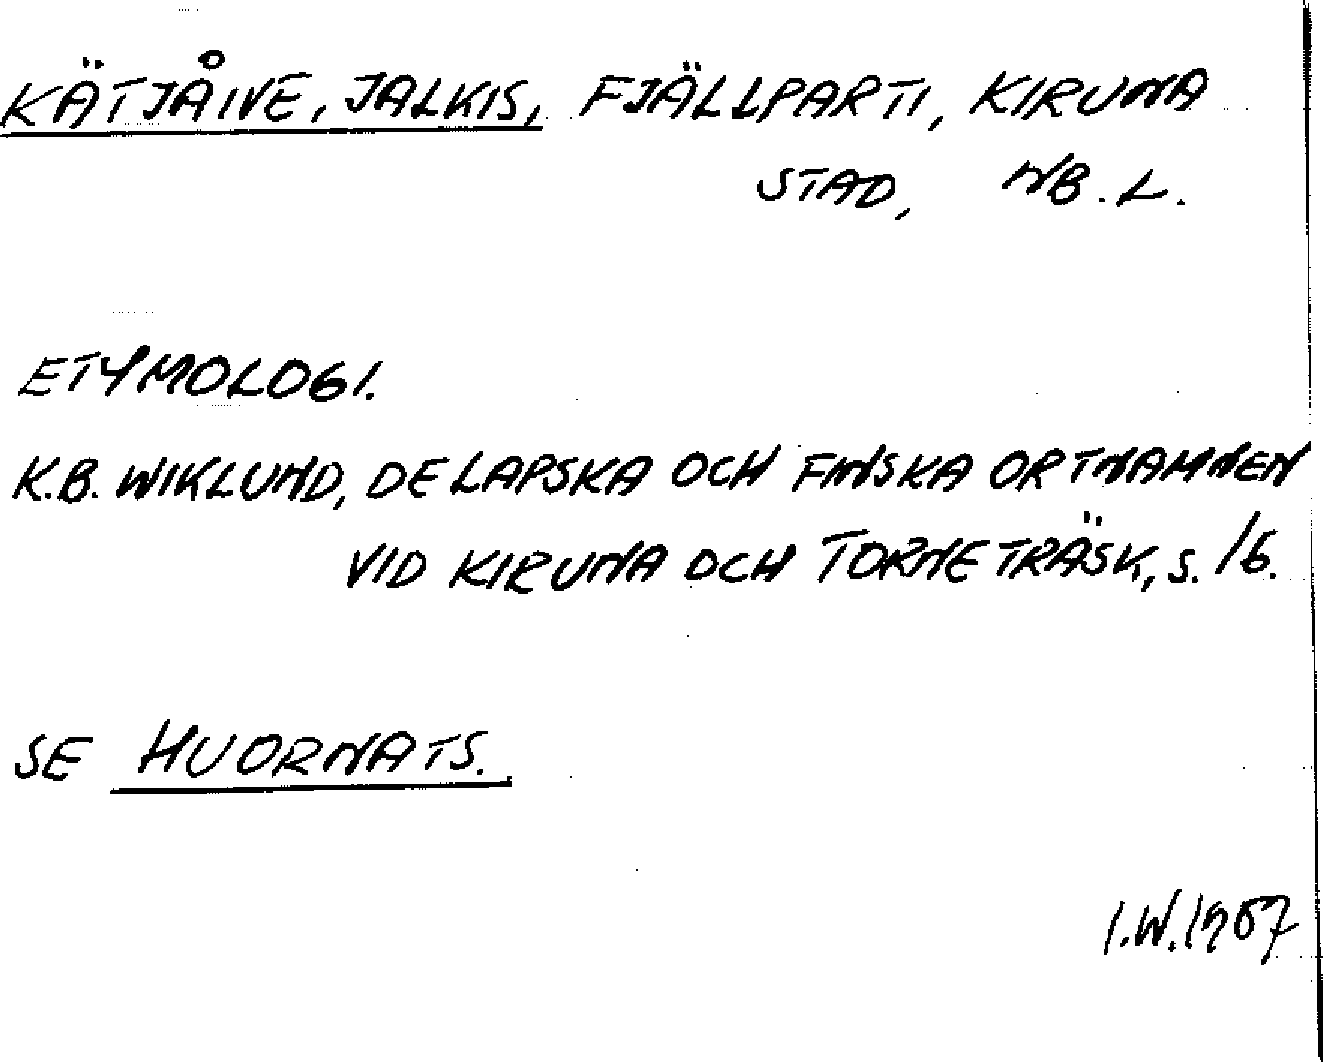 KÄTJÅIVE, JALKIS, FJÄLLPARTI, KIRUNA
STAD, NB.L.
ETYMOLOGI.
K.B. WIKLUND, DE LAPSKA OCH FINSKA ORTNAMNEN
VID KIRUNA OCH TORNETRÄSK, S. 16.
SE HUORNATS.
I.W.1967